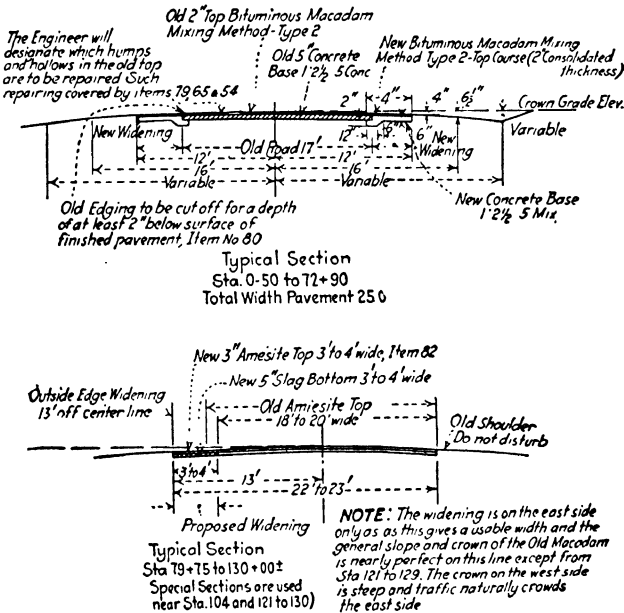 Old 2" Top Bituminous Macadam
Mixing Method-Type 2
The Engineer will
designate which humps
and hollows in the old top
are to be repaired Such
repairing covered by items 79 65 & 54
Old 5" Concrete
Base 1·2½ 5 Conc
New Bituminous Macadam Mixing
Method Type 2-Top Course (2" Consolidated
thickness)
2" 4" 4" 6½"
Crown Grade Elev.
Variable
New Widening
Old Road 17'
12"
6"
6"
New
Widening
12' 12'
16' 16'
Variable Variable
New Concrete Base
1·2½ 5 Mix.
Old Edging to be cut off for a depth
of at least 2" below surface of
finished pavement, Item No 80
Typical Section
Sta. 0-50 to 72+90
Total Width Pavement 25.0
New 3" Amesite Top 3' to 4' wide, Item 82
New 5" Slag Bottom 3' to 4' wide
Outside Edge Widening
13' off center line
Old Amiesite Top
18' to 20' wide
Old Shoulder
Do not disturb
3' to 4'
13'
22' to 23'
Proposed Widening
Typical Section
Sta 79+75 to 130+00±
Special Sections are used
near Sta. 104 and 121 to 130)
NOTE: The widening is on the east side
only as as this gives a usable width and the
general slope and crown of the Old Macadam
is nearly perfect on this line except from
Sta 121 to 129. The crown on the west side
is steep and traffic naturally crowds
the east side